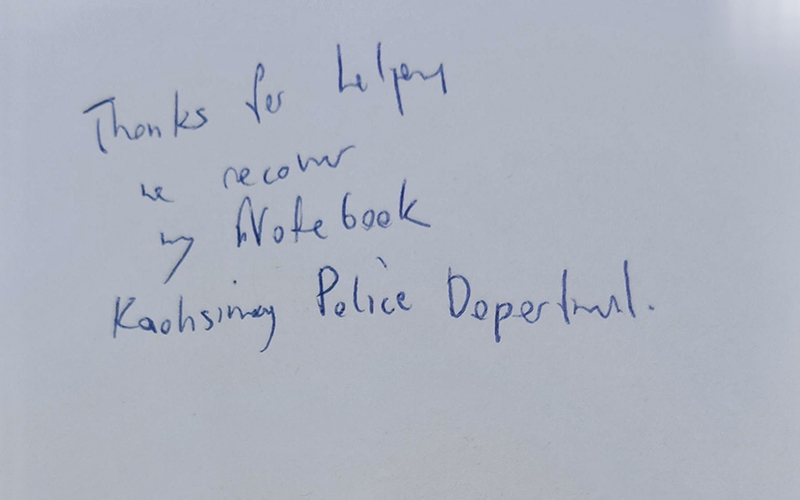 Thanks for helping
me recover
my Notebook
Kaohsiung Police Department.